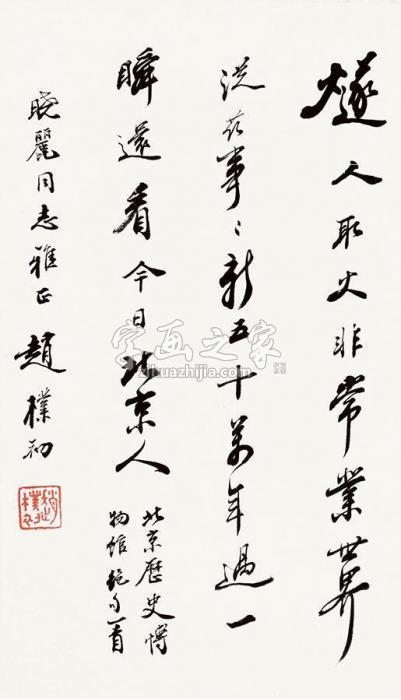 燧人取火非常業世界
從茲事〻新五十萬年過一
瞬還看今日北京人
北京歷史博
物館絕句一首
曉麗同志雅正 趙樸初
趙樸初
字画之家
zihuazhijia.com